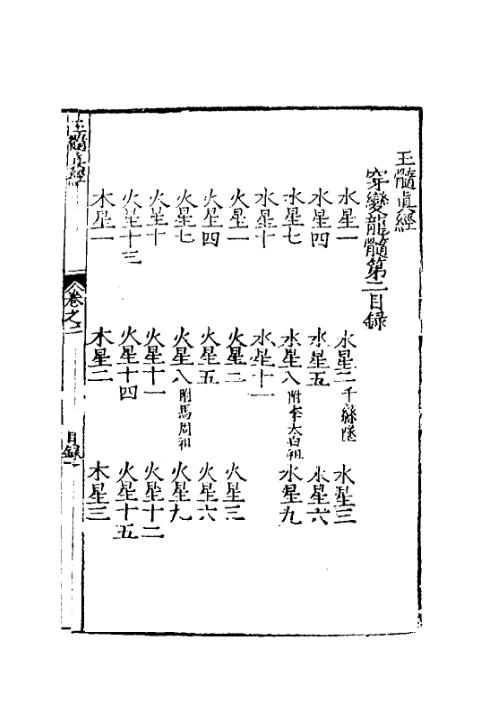 玉髓真經
穿變龍髓第二目錄
水星一 水星二 千絲墜 水星三
水星四 水星五 水星六
水星七 水星八 附李太白祖 水星九
水星十 水星十一
火星一 火星二 火星三
火星四 火星五 火星六
火星七 火星八 附馬周祖 火星九
火星十 火星十一 火星十二
火星十三 火星十四 火星十五
木星一 木星二 木星三
玉髓真經 卷之二 目錄